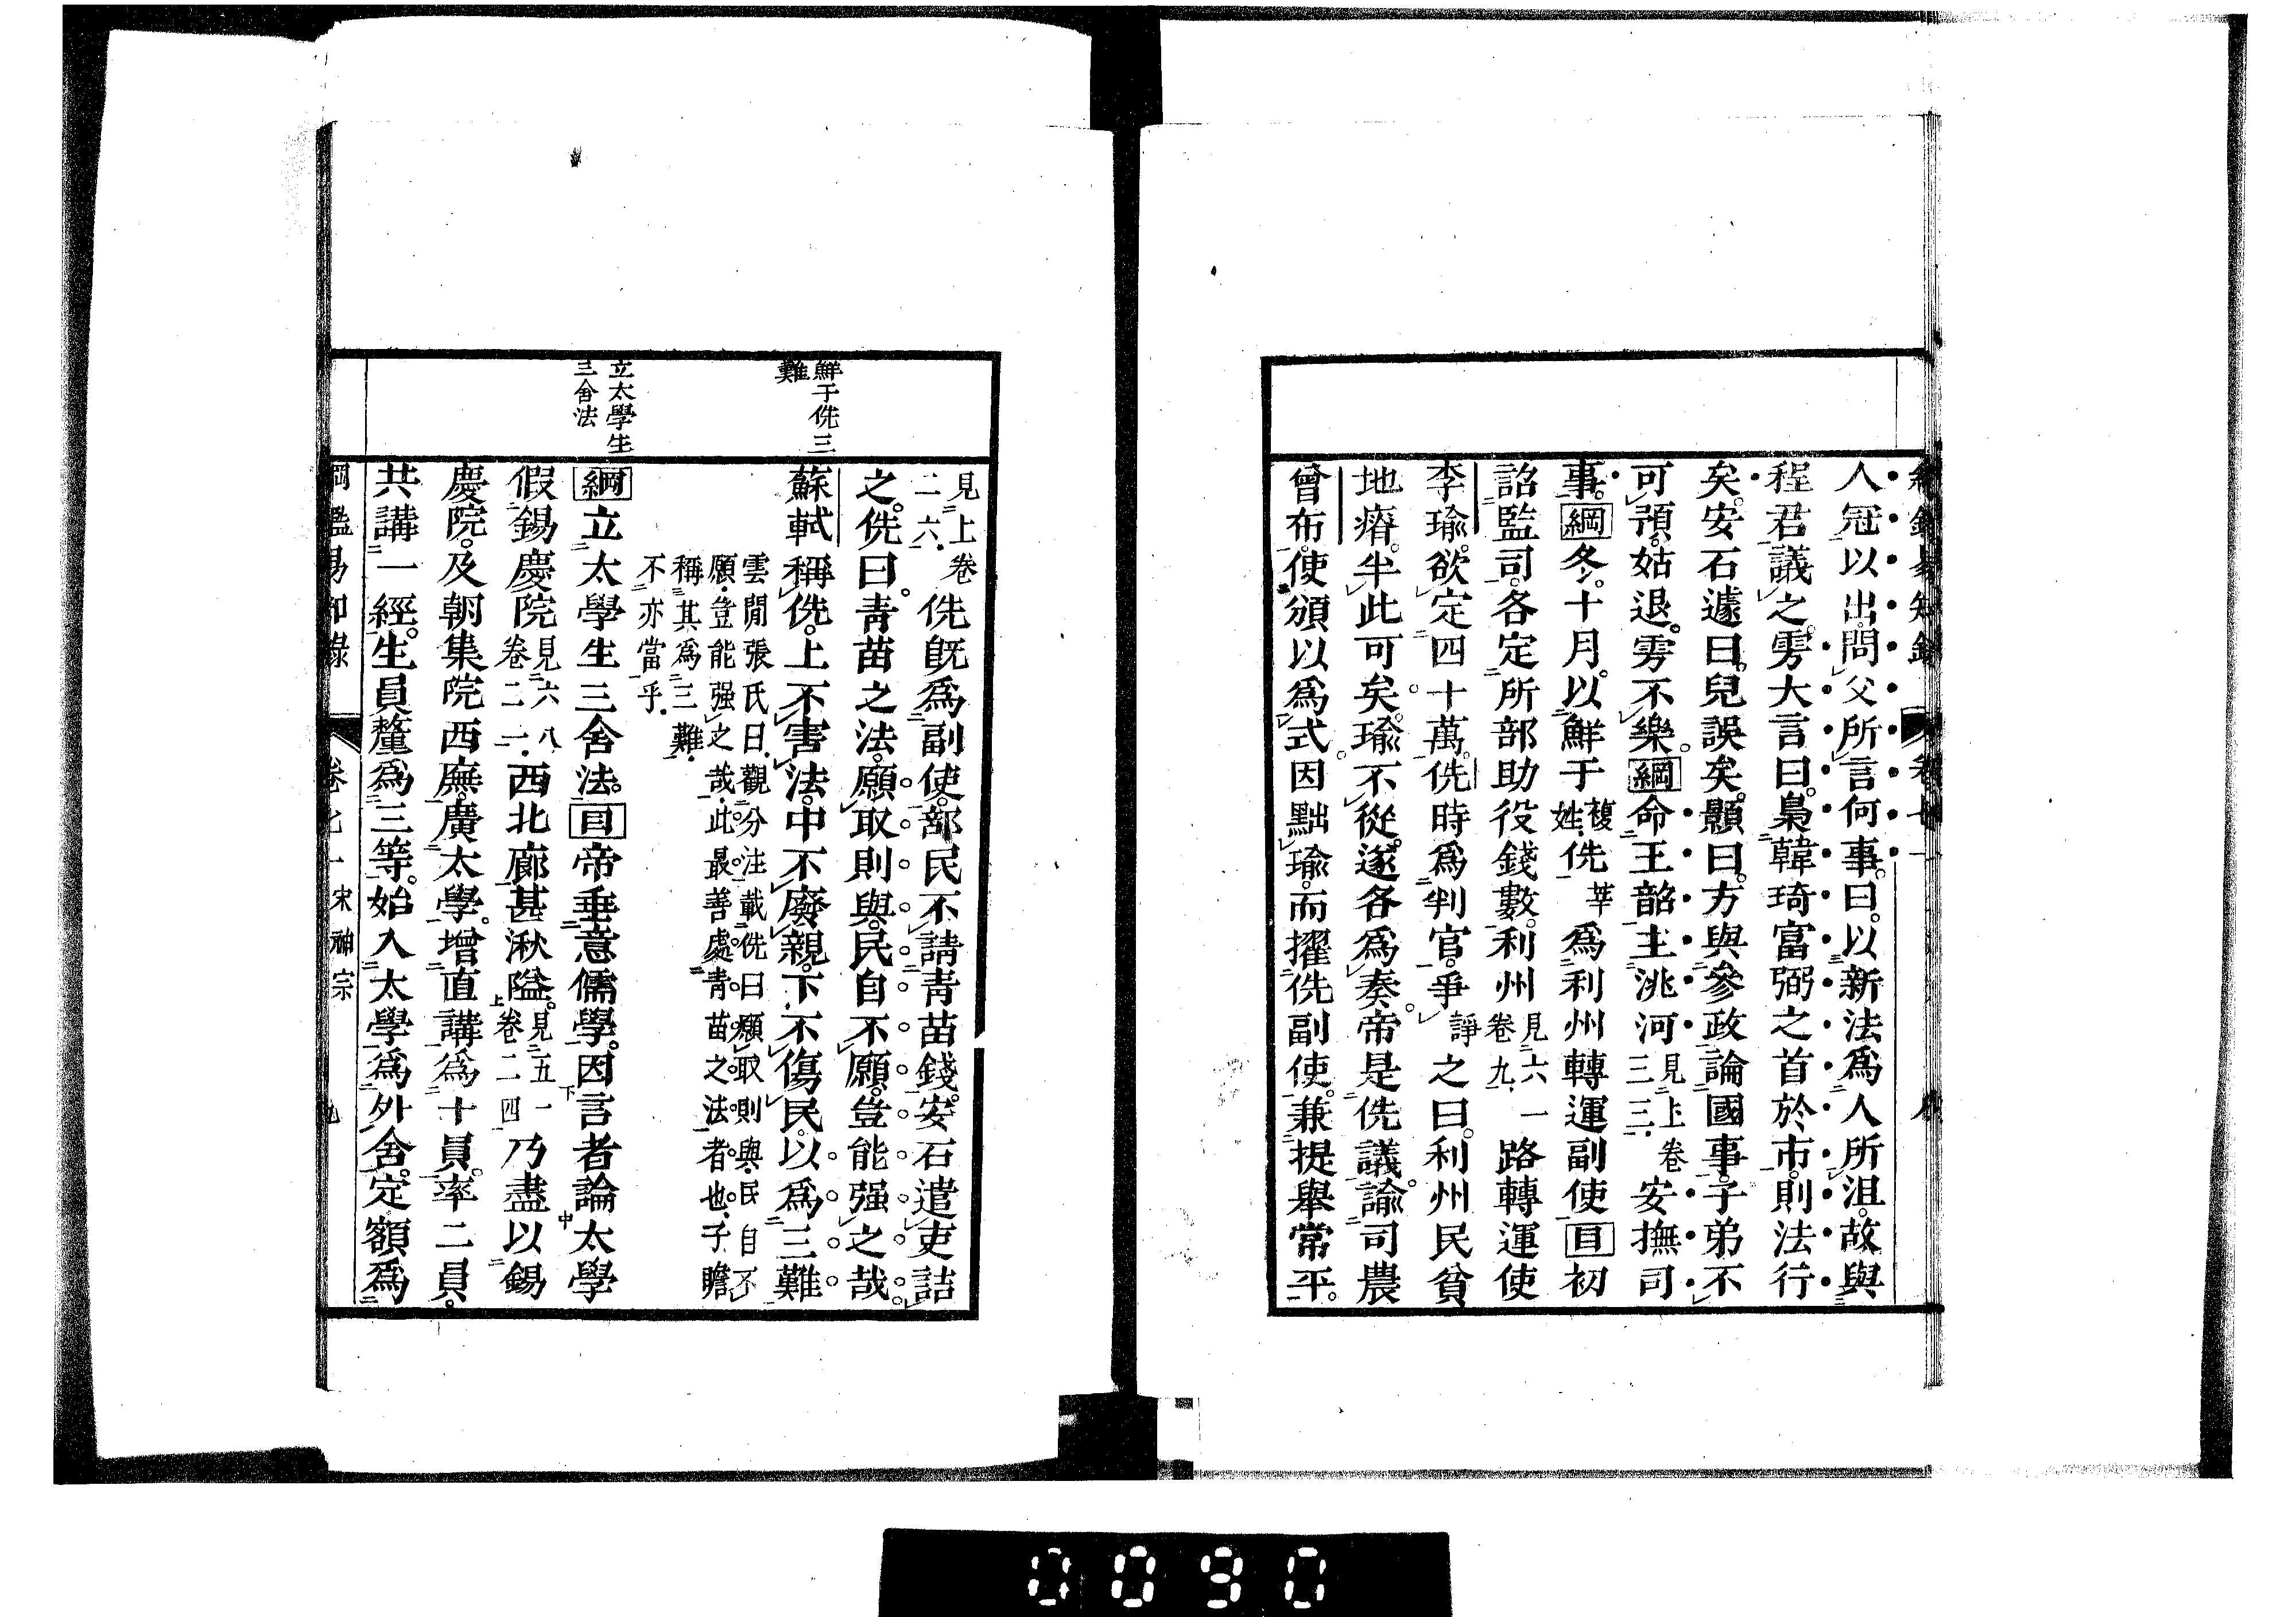 人冠以出。問父所言何事。曰。以新法爲人所沮。故與
程君議之。雱大言曰。梟韓琦富弼之首於市。則法行
矣。安石遽曰。兒誤矣。顥曰。方與參政論國事。子弟不
可預。姑退。雱不樂。綱命王韶主洮河見上卷三三安撫司
事。綱冬。十月。以鮮于複姓侁莘爲利州轉運副使目初
詔監司。各定所部助役錢數。利州見六卷九一路轉運使
李瑜。欲定四十萬。侁時爲判官。爭諍之曰。利州民貧
地瘠。半此可矣。瑜不從。遂各爲奏。帝是侁議。諭司農
曾布。使頒以爲式。因黜瑜。而擢侁副使。兼提舉常平。
鮮于侁三難
立太學生三舍法
見上卷二六侁旣爲副使。部民不請靑苗錢。安石遣吏詰
之。侁曰。靑苗之法。願取則與。民自不願。豈能强之哉。
蘇軾稱侁。上不害法。中不廢親。下不傷民。以爲三難
雲閒張氏曰。觀分注載侁曰願取則與民自不
願。豈能强之哉。此最善處靑苗之法者也。子瞻
稱其爲三難。
不亦當乎。
綱立太學生三舍法。目帝垂意儒學。因言者論太學
假錫慶院見六八卷二一西北廊甚湫隘。見五一上卷二四乃盡以錫
慶院。及朝集院西廡。廣太學。增直講爲十員。率二員。
共講一經。生員釐爲三等。始入太學爲外舍。定額爲
綱鑑易知錄 卷七一 宋神宗 九
0090